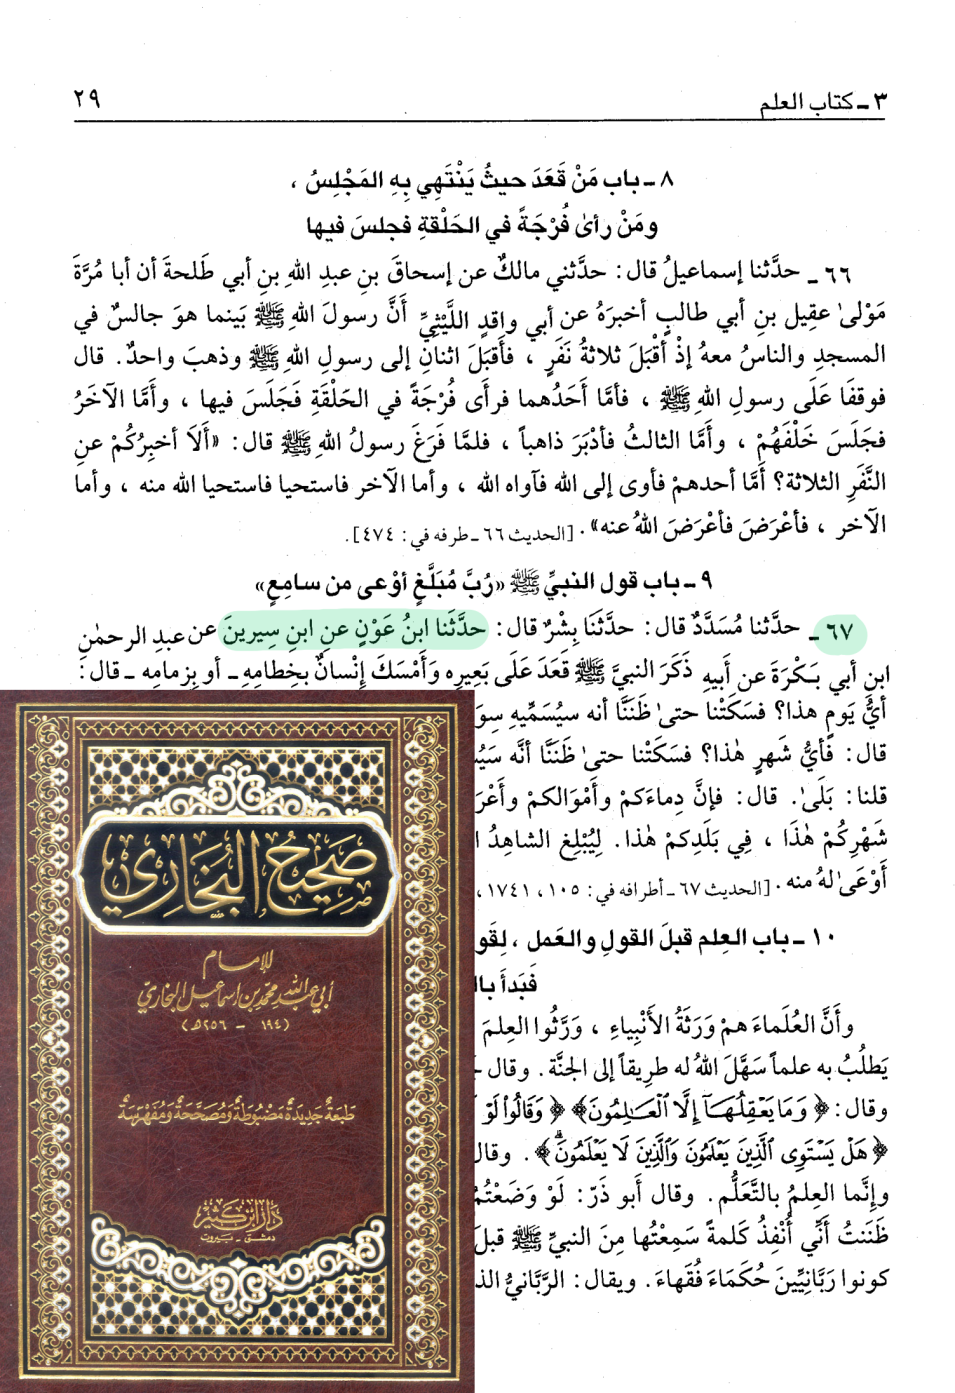 ٣ ـ كتاب العلم
٢٩
٨ ـ باب مَنْ قَعَدَ حيثُ يَنْتَهِي بِهِ المَجْلِسُ ،
ومَنْ رأىٰ فُرْجَةً في الحَلْقةِ فجلسَ فيها
٦٦ ـ حدَّثنا إسماعيلُ قال : حدَّثني مالكٌ عن إسحاقَ بنِ عبدِ اللهِ بنِ أبي طَلحةَ أن أبا مُرَّةَ
مَوْلىٰ عقِيلِ بنِ أبي طالبٍ أخبرَهُ عن أبي واقدٍ اللَّيْثِيِّ أَنَّ رسولَ اللهِ ﷺ بَينما هوَ جالسٌ في
المسجدِ والناسُ معهُ إذْ أقْبَلَ ثلاثةُ نَفَرٍ ، فأَقبَلَ اثنانِ إلى رسولِ اللهِ ﷺ وذهبَ واحدٌ . قال
فوقفَا عَلَى رسولِ اللهِ ﷺ ، فأمَّا أحَدُهما فرأى فُرْجَةً في الحَلْقةِ فَجَلَسَ فيها ، وأمَّا الآخَرُ
فجَلَسَ خَلْفَهُمْ ، وأمَّا الثالثُ فأدْبَرَ ذاهباً ، فلمَّا فَرَغَ رسولُ اللهِ ﷺ قال : «ألَا أخبِرُكُمْ عنِ
النَّفَرِ الثلاثة؟ أمَّا أحدهمْ فأوى إلى الله فآواه الله ، وأما الآخر فاستحيا فاستحيا الله منه ، وأما
الآخر ، فأعْرَضَ فأعْرَضَ اللهُ عنه» . [الحديث ٦٦ ـ طرفه في : ٤٧٤] .
٩ ـ باب قول النبيِّ ﷺ «رُبَّ مُبَلَّغٍ أوْعى من سامِعٍ»
٦٧ ـ حدَّثنا مُسَدَّدٌ قال : حدَّثَنَا بِشْرٌ قال : حدَّثَنا ابنُ عَوْنٍ عنِ ابنِ سِيرينَ عن عبدِ الرحمٰنِ
ابنِ أبي بَكْرَةَ عن أبيهِ ذَكَرَ النبيَّ ﷺ قَعَدَ عَلَى بَعِيرِهِ وَأَمْسَكَ إنْسانٌ بخِطامِهِ ـ أو بِزِمامِهِ ـ قال :
أيُّ يَومٍ هذا؟ فسَكَتْنا حتىٰ ظَنَنَّا أنه سيُسَمِّيهِ سِو
قال : فأيُّ شَهرٍ هٰذا؟ فسَكَتْنا حتىٰ ظَنَنَّا أنَّه سَيُ
قلنا : بَلَىٰ . قال : فإنَّ دِماءَكمْ وأمْوَالكمْ وأعْرَ
شَهْرِكُمْ هٰذَا ، فِي بَلَدِكمْ هٰذا . لِيُبْلِغِ الشاهِدُ ا
أَوْعَىٰ لهُ منه . [الحديث ٦٧ ـ أطرافه في : ١٠٥ ، ١٧٤١ ،
١٠ ـ باب العِلم قبلَ القولِ والعَمل ، لِقَو
فَبَدأَ بال
وأَنَّ العُلَماءَ همْ وَرَثَةُ الأنْبِياءِ ، وَرَّثُوا العِلمَ
يَطلُبُ به علماً سَهَّلَ اللهُ له طرِيقاً إلى الجنَّة . وقال جَ
وقال : ﴿ وَمَا يَعْقِلُهَآ إِلَّا ٱلْعَٰلِمُونَ ﴾ ﴿ وَقَالُوا۟ لَوْ
﴿ هَلْ يَسْتَوِى ٱلَّذِينَ يَعْلَمُونَ وَٱلَّذِينَ لَا يَعْلَمُونَ ﴾ . وقال
وإنَّما العِلمُ بالتَّعَلُّم . وقال أبو ذَرّ : لَوْ وَضَعْتُمُ
ظَنَنتُ أنِّي أُنْفِذُ كَلمةً سَمِعْتُها مِنَ النبيِّ ﷺ قبلَ
كونوا رَبَّانِيِّينَ حُكَمَاءَ فُقَهاءَ . ويقال : الرَّبَّانيُّ الذ
صَحِيحُ البُخَارِي
للإمام
أبي عبد الله محمد بن إسماعيل البخاري
(١٩٤ - ٢٥٦ هـ)
طبعَةٌ جَديدَةٌ مَضْبُوطَةٌ ومُصَحَّحَةٌ ومُفَهْرَسَةٌ
دَارُ ابْن كَثِير
دمشق - بيروت